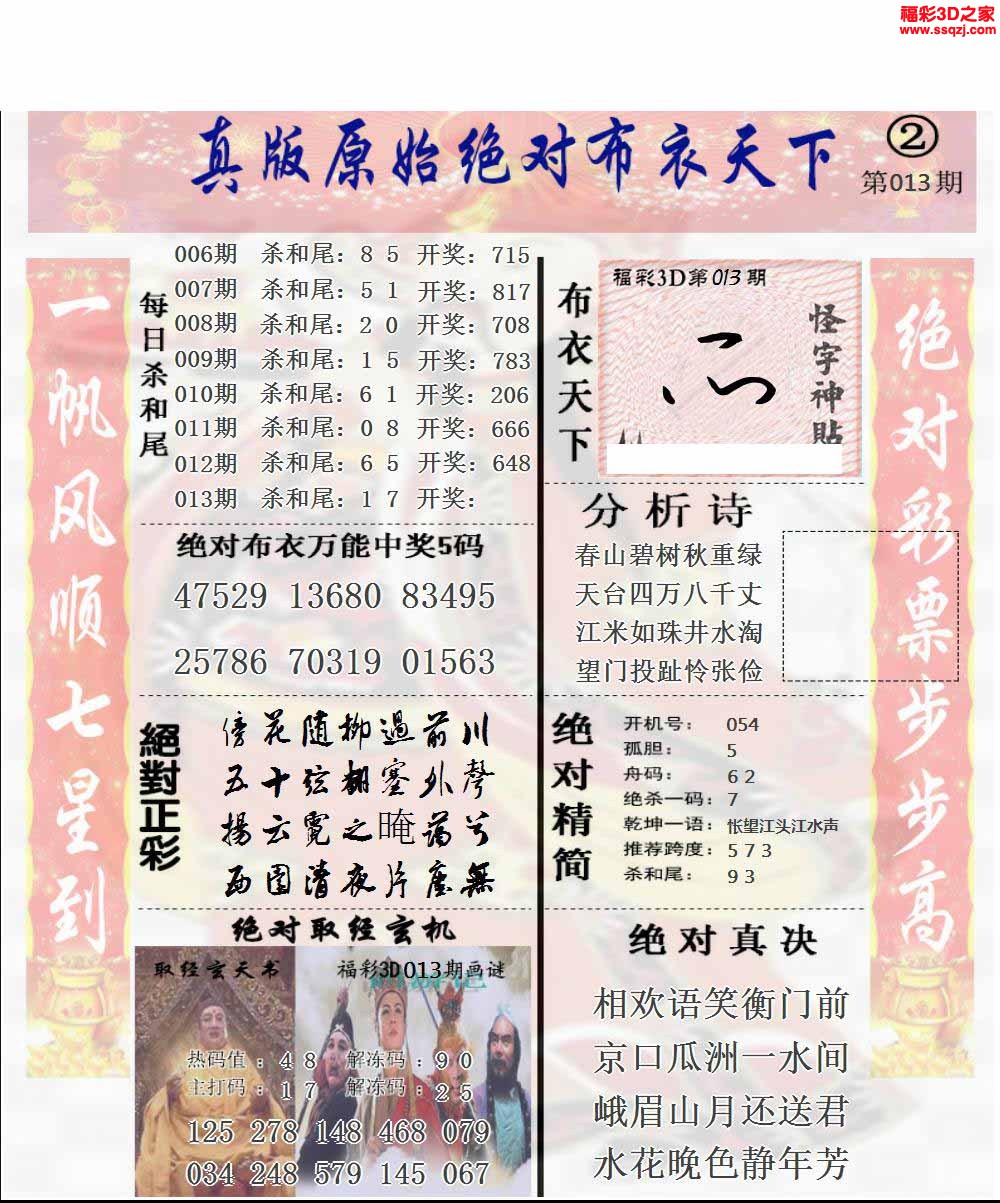 福彩3D之家
www.ssqzj.com
真版原始绝对布衣天下
②
第013期
一帆风顺七星到
绝对彩票步步高
每日杀和尾
006期 杀和尾：8 5 开奖：715
007期 杀和尾：5 1 开奖：817
008期 杀和尾：2 0 开奖：708
009期 杀和尾：1 5 开奖：783
010期 杀和尾：6 1 开奖：206
011期 杀和尾：0 8 开奖：666
012期 杀和尾：6 5 开奖：648
013期 杀和尾：1 7 开奖：
绝对布衣万能中奖5码
47529 13680 83495
25786 70319 01563
絕對正彩
傍花随柳過前川
五十弦翻塞外聲
揚云霓之晻蔼兮
西园清夜片塵無
绝对取经玄机
取经玄天书
福彩3D013期画谜
热码值：4 8 解冻码：9 0
主打码：1 7 解冻码：2 5
125 278 148 468 079
034 248 579 145 067
布衣天下
福彩3D第013期
怪字神貼
分析诗
春山碧树秋重绿
天台四万八千丈
江米如珠井水淘
望门投趾怜张俭
绝对精简
开机号： 054
孤胆： 5
舟码： 6 2
绝杀一码：7
乾坤一语：怅望江头江水声
推荐跨度：5 7 3
杀和尾： 9 3
绝对真决
相欢语笑衡门前
京口瓜洲一水间
峨眉山月还送君
水花晚色静年芳